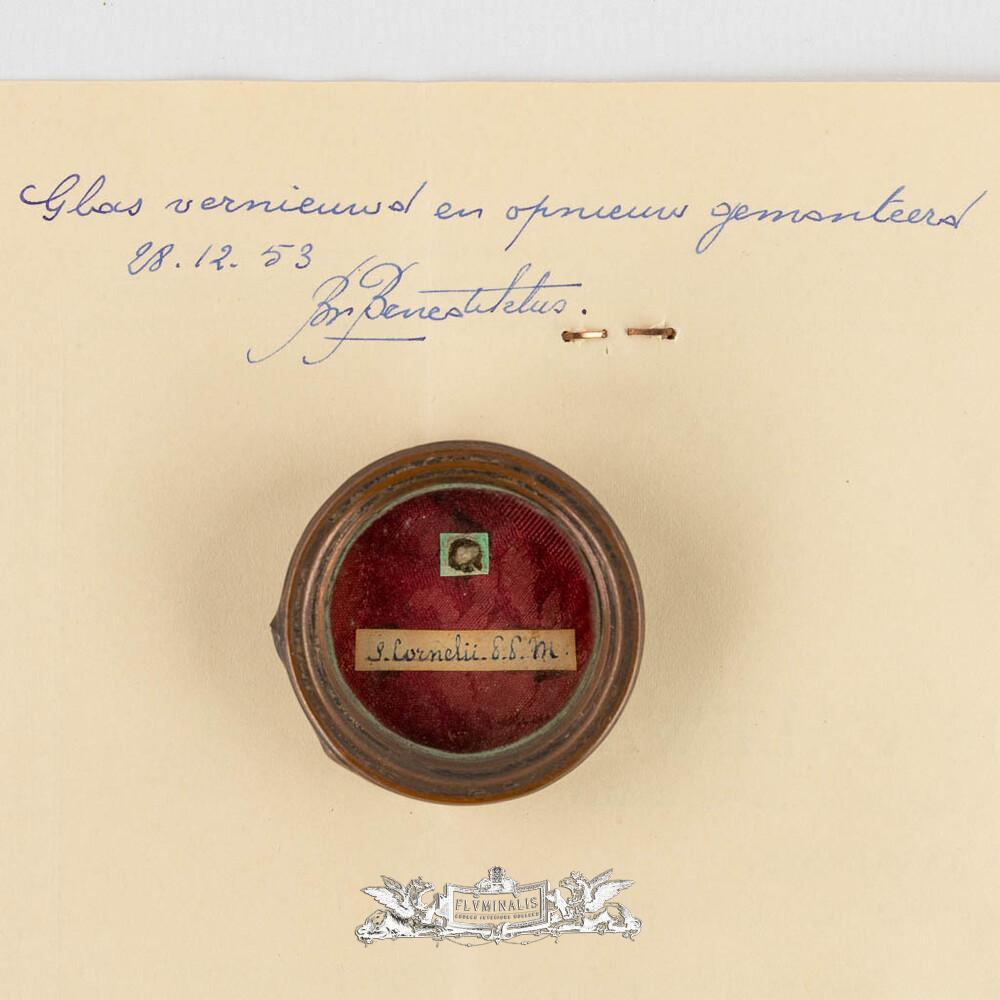 Glas vernieuwd en opnieuw gemonteerd
28.12.53
Br. Benediktus.
S. Cornelii. P.P. M.
FLVMINALIS